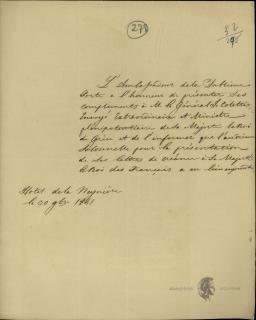 279
52
L'Ambassadeur de la Sublime
Porte a l'honneur de présenter ses
compléments à M. le Général Coletti,
Envoyé Extraordinaire et Ministre
plénipotentiaire de Sa Majesté le Roi
de Grèce et de l'informer que l'audience
Solennelle pour la présentation
de ses lettres de créance à Sa Majesté
le Roi des Français a eu lieu
Hôtel de la
le 20 9bre 1841